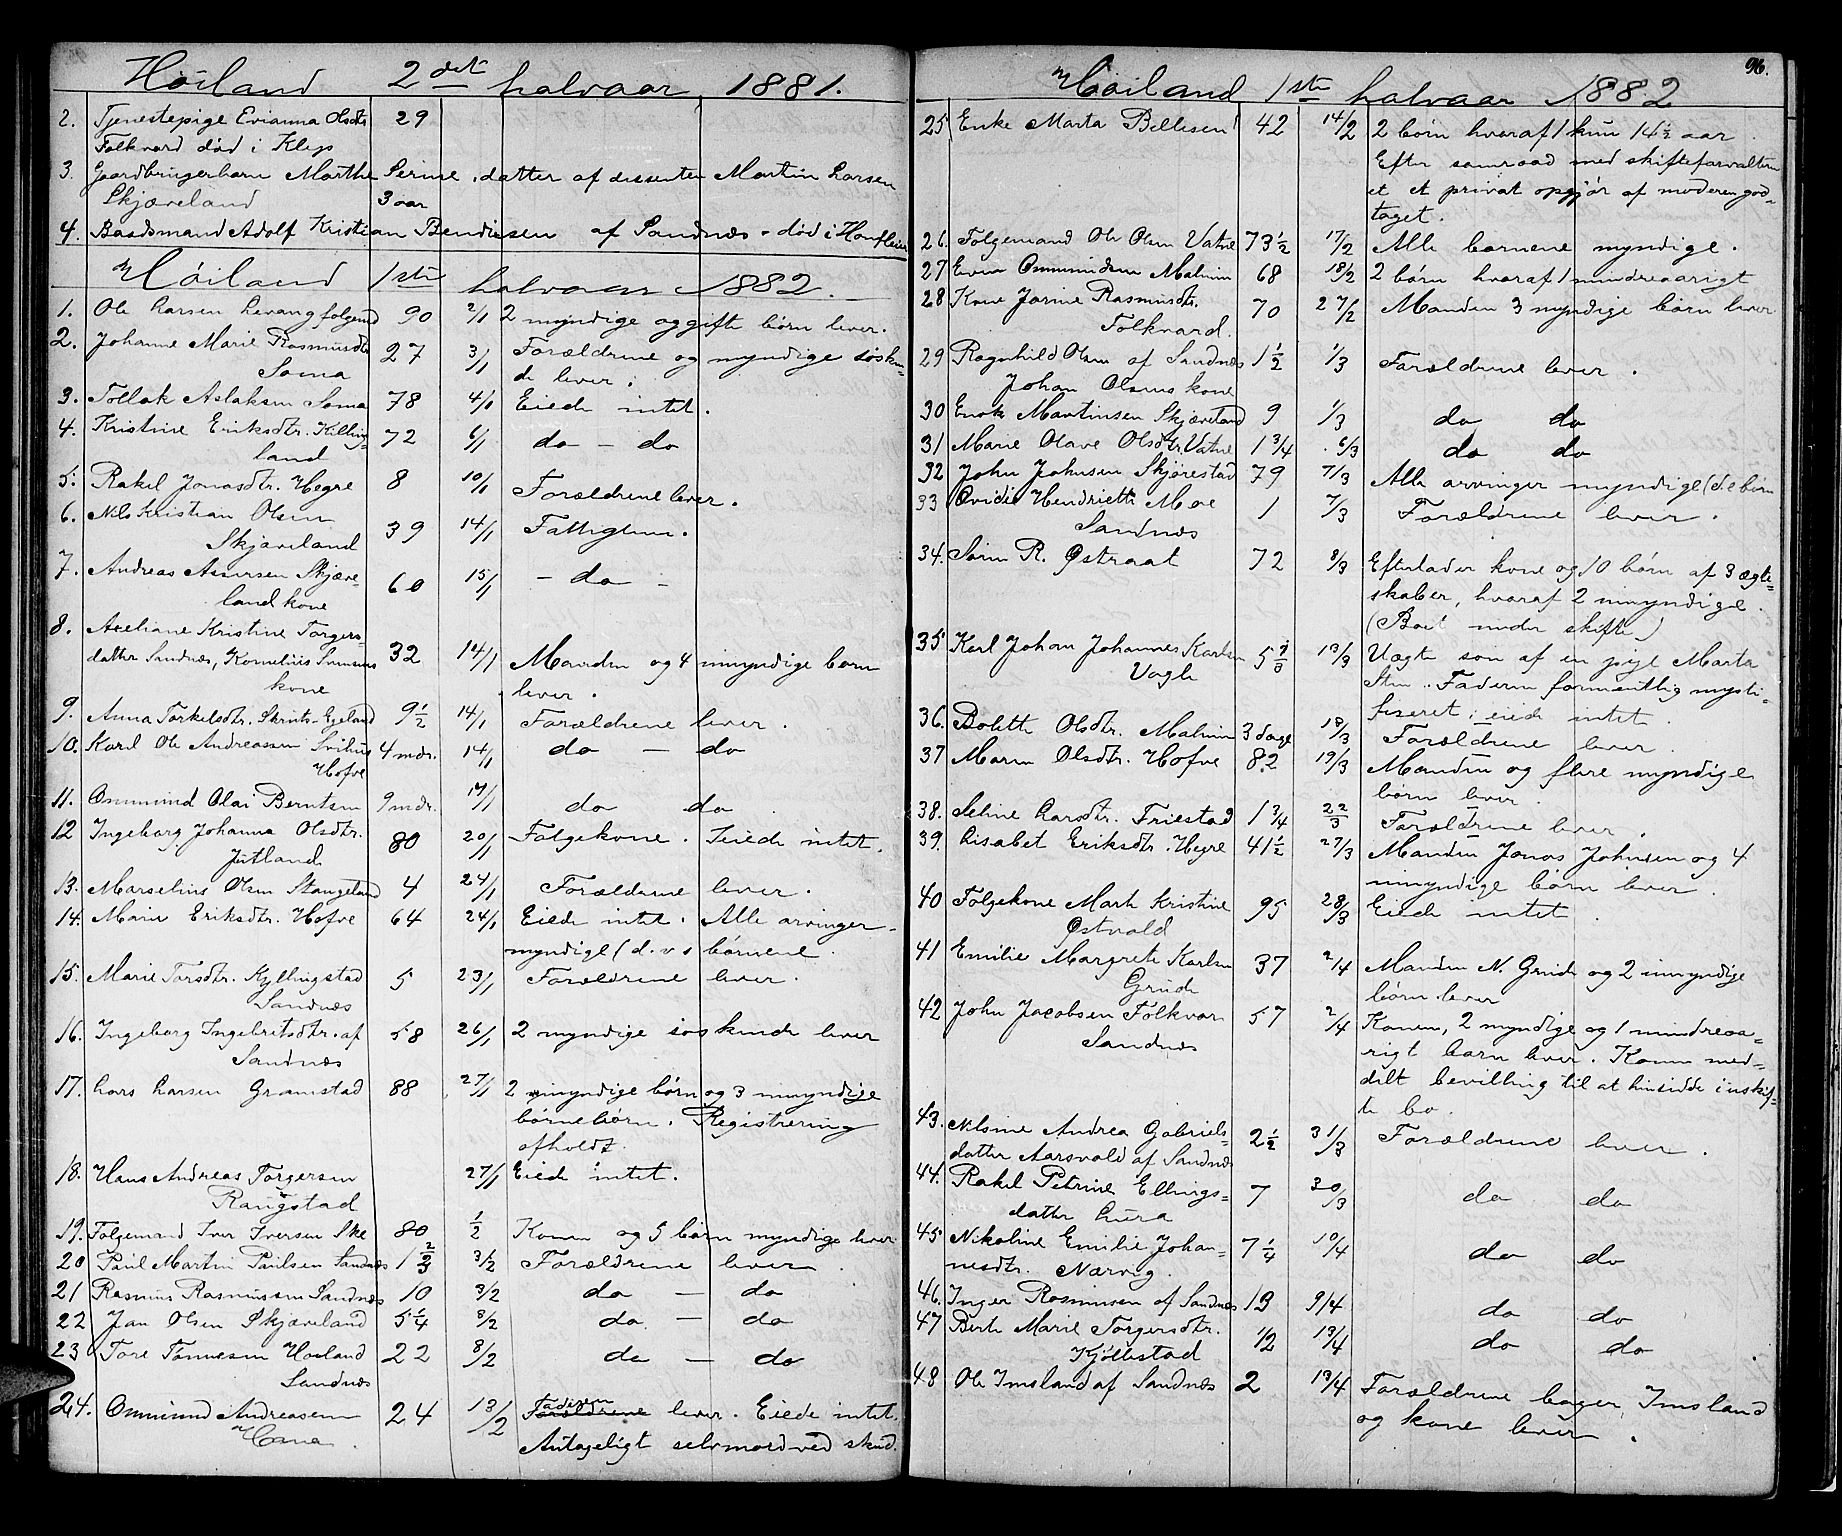 Høiland 2det halvaar 1881.
2. Tjenestepige Evianna Olsdtr 29
Folkvord død i Klep
3. Gaardbrugerbarn Marthe Serine, datter af dissenter Martin Larsen
Skjæveland 3 aar
4. Baadsmand Adolf Kristian Bendiksen af Sandnæs - død i Honfleur
Høiland 1ste halvaar 1882.
1. Ole Larsen Levang folgemd 90 2/1 2 myndige og gifte børn lever.
2. Johanne Marie Rasmusdtr 27 3/1 Forældrene og myndige søsken-
Soma de lever.
3. Tollak Aslaksen Soma 78 4/1 Eiede intet.
4. Kristine Eriksdtr. Killing- 72 6/1 do - do
land
5. Rakel Jonasdtr. Hegre 8 10/1 Forældrene lever.
6. Nils Kristian Olsen
Skjæveland 39 14/1 Fattiglem.
7. Andreas Assersen Skjæve- 60 15/1 - do -
land kone
8. Axeliane Kristine Torgers-
datter Sandnæs, Kornelius 32 14/1 Manden og 4 umyndige børn
kone lever.
9. Anna Torkelsdtr. Skruts-Egeland 9½ 14/1 Forældrene lever.
10. Karl Ole Andreassen 4 mdr. 14/1 do - do
Hofve
11. Ommund Olai Berntsen 9 mdr. 17/1 do do
12 Ingeborg Johanna Olsdtr. 80 20/1 Følgekone. Eiede intet.
Jutland
13. Marselius Olsen Stangeland 4 24/1 Forældrene lever.
14. Maria Eriksdtr. Hofve 64 24/1 Eiede intet. Alle arvinger
myndige (d.v.s børnene.
15. Marie Torsdtr. Kyllingstad 5 23/1 Forældrene lever.
Sandnæs
16. Ingeborg Ingebretsdtr. af 58 26/1 2 myndige søskende lever
Sandnæs
17. Lars Larsen Gramstad 88 27/1 2 myndige børn og 3 umyndige
børnebørn. Registrering
afholdt.
18. Hans Andreas Torgersen 27/1 Eiede intet.
Raugstad
19. Følgemand Iver Iversen Ske 80 1/2 Konen og 5 børn myndige lever
20 Paul Martin Paulsen Sandnæs 1 2/3 3/2 Forældrene lever.
21 Rasmus Rasmussen Sandnæs 10 3/2 do - do
22 Jan Olsen Skjæveland 5¼ 8/2 do - do
23 Tore Tønnesen Høiland 22 8/2 do - do
Sandnæs
24. Ommund Andreasen 24 13/2 Forældrene Faderen lever. Eiede intet.
Hana Antageligt selvmord ved skud.
96.
Høiland 1ste halvaar 1882
25 Enke Marta Bellesen 42 14/2 2 børn hvoraf 1 kun 14½ aar
Efter samraad med skifteforvalteren
et privat opgjør af moderen god-
taget.
26. Følgemand Ole Olsen Vatne 73½ 17/2 Alle børnene myndige.
27 Even Ommundsen Malmin 68 18/2 2 børn hvoraf 1 mindreaarigt
28 Kone Jorine Rasmusdtr.
Folkvord. 70 27/2 Manden 3 myndige børn lever
29 Ragnhild Olsen af Sandnæs 1½ 1/3 Forældrene lever.
Johan Olsens kone
30 Enok Martinsen Skjæveland 9 1/3 do do
31 Marie Olave Olsdtr. Vatne 1¾ 6/3 do do
32 John Johnsen Skjørestad 79 7/3 Alle arvinger myndige (d.e børn
33 Ovidia Hendriette Moe 1 7/3 Forældrene lever.
Sandnæs
34. Søren R. Østraat 72 8/3 Efterlader kone og 10 børn af 3 ægte-
skaber, hvoraf 2 umyndige.
(Boet under skifte)
35 Karl Johan Johannes Karlsen 5 13/3 Uægte søn af en pige Marta
Vagle Sten. Faderen formentlig mysti-
fiseret; eiede intet.
36. Bolette Olsdtr. Malmin 3 dage 18/3 Forældrene lever.
37 Maren Olsdtr. Hofve 82 19/3 Manden og flere myndige
børn lever.
38. Seline Larsdtr. Friestad 1¾ 22/3 Forældrene lever.
39. Lisabet Eriksdtr. Hegre 41½ 27/3 Manden Jonas Johnsen og 4
umyndige børn lever.
40 Følgekone Marte Kristine 95 28/3 Eiede intet.
Østvold
41 Emilie Margrete Karlsen 37 2/4 Manden N. Grude og 2 umyndige
Grude børn lever
42 John Jacobsen Folkvor 57 2/4 Konen, 2 myndige og 1 mindreaa-
Sandnæs rigt barn lever. Konen med-
delt bevilling til at hensidde i uskif-
te bo.
43. Nilsine Andrea Gabriels- 2½ 31/3 Forældrene lever.
datter Aarsvold af Sandnæs
44. Rakel Petrine Ellings- 7 30/3 do do
datter Lura
45 Nikoline Emilie Johan- 7¼ 10/4 do do
nesdtr. Nærvig.
46. Inger Rasmussen af Sandnæs 13 9/4 do do
47 Berte Marie Torgersdtr. 1/2 13/4 do do
Kjøllestad
48 Ole Imsland af Sandnæs 2 13/4 Forældrene bager Imsland
og kone lever.